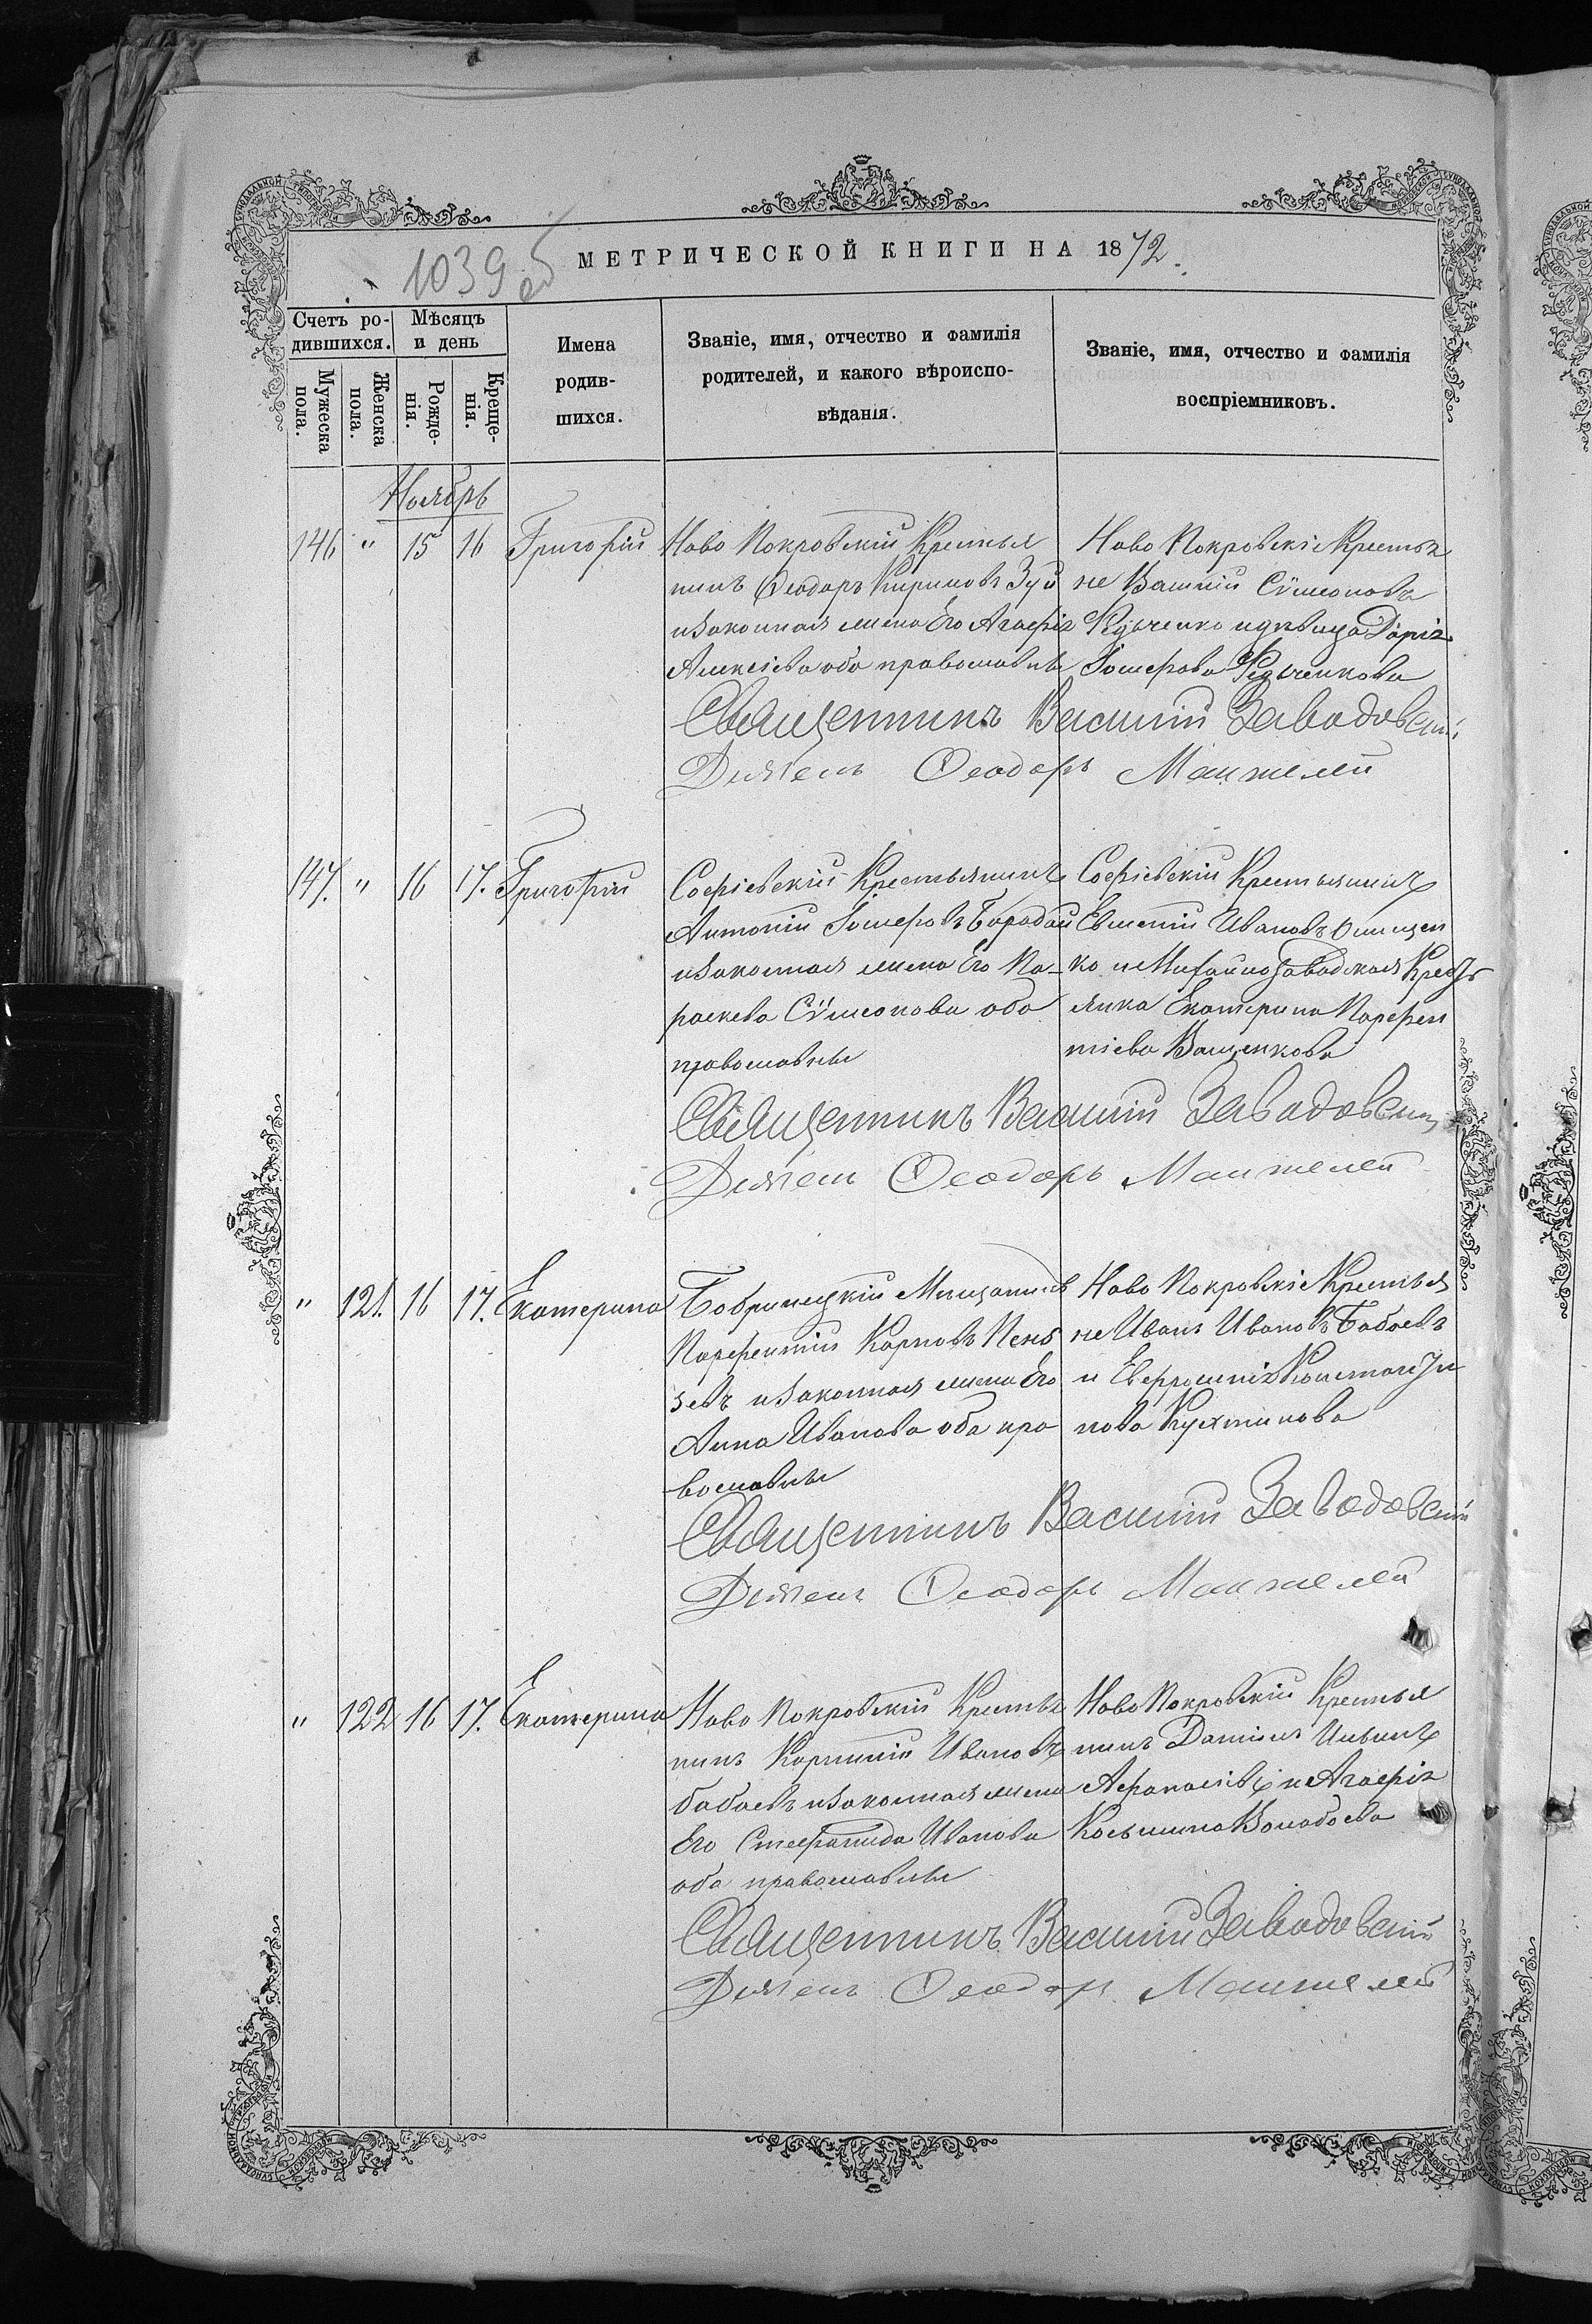 1039 об
МЕТРИЧЕСКОЙ КНИГИ НА 1872.
Счетъ ро-
дившихся.
Мѣсяцъ
и день
Мужеска
пола.
Женска
пола.
Рожде-
нія.
Креще-
нія.
Имена
родив-
шихся.
Званіе, имя, отчество и фамилія
родителей, и какого вѣроиспо-
вѣданія.
Званіе, имя, отчество и фамилія
воспріемниковъ.
Ноябрь
146 " 15 16 Григорій
Ново Покровскій Крестья
нинъ Ѳеодоръ Кириловъ Зуй
и законная жена Его Агафія
Алексіева оба православные
Ново Покровскіе Крестья
не Василій Сѵмеоновъ
и дѣвица Дарія
Іосифова
Священникъ Василій Заводовскій
Дьячекъ Ѳеодоръ Манжелей
147. " 16 17. Григорій
Софіевскій Крестьянинъ
Антоній Іосифовъ Бородай
и законная жена Его Па-
раскева Сѵмеонова оба
православные
Софіевскій Крестьянинъ
Евменій Ивановъ Онищен
ко и Михайлозаводская Кресть
янка Екатерина Парфен
тіева Ващенкова
Священникъ Василій Заводовскій
Дьячекъ Ѳеодоръ Манжелей
" 121. 16 17. Екатерина
Бобринецкій Мещанинъ
Парфентій Карповъ Пенб
зевъ и законная жена Его
Анна Иванова оба пра
вославные
Ново Покровскіе Крестья
не Иванъ Ивановъ Бабаевъ
и Евфросинія Константи
нова
Священникъ Василій Заводовскій
Дьячекъ Ѳеодоръ Манжелей
" 122 16 17. Екатерина
Ново Покровскій Крестья
нинъ Корнилій Ивановъ
бабаевъ и законная жена
Его Стефанида Иванова
оба православные
Ново Покровскій Крестья
нинъ Даніилъ Ильинъ
Афанасіевъ и Агафія
Косьмина
Священникъ Василій Заводовскій
Дьячекъ Ѳеодоръ Манжелей